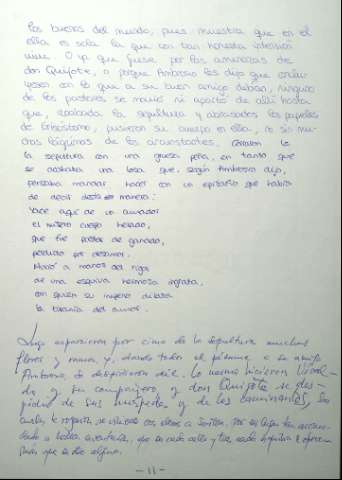 los buenos del mundo, pues muestra que en él
ella es sola la que con tan honesta intención
vive. O ya que fuese por las amenazas de
don Quijote, o porque Ambrosio les dijo que concluy
yesen con lo que a su buen amigo debían, ninguno
de los pastores se movió ni apartó de allí hasta
que, acabada la sepultura y abrasados los papeles
de Grisóstomo, pusieron su cuerpo en ella, no sin mu-
chas lágrimas de los circunstantes. Cerraron la
la sepultura con una gruesa peña, en tanto que
se acababa una losa que, según Ambrosio dijo,
pensaba mandar hacer con un epitafio que había
de decir desta manera:
Yace aquí de un amador
el mísero cuerpo helado,
que fue pastor de ganado,
perdido por desamor.
Murió a manos del rigor
de una esquiva hermosa ingrata,
con quien su imperio dilata
la tiranía del amor.
Luego esparcieron por cima de la sepultura muchas
flores y ramos, y, dando todos el pésame a su amigo
Ambrosio, se despidieron dél. Lo mesmo hicieron Vival-
do y su compañero, y don Quijote se des-
pidió de sus huéspedes y de los caminantes, los
cuales le rogaron se viniese con ellos a Sevilla, por ser lugar tan acomo-
dado a hallar aventuras, que en cada calle y tras cada esquina se ofrecen
más que en otro alguno.
- 11 -